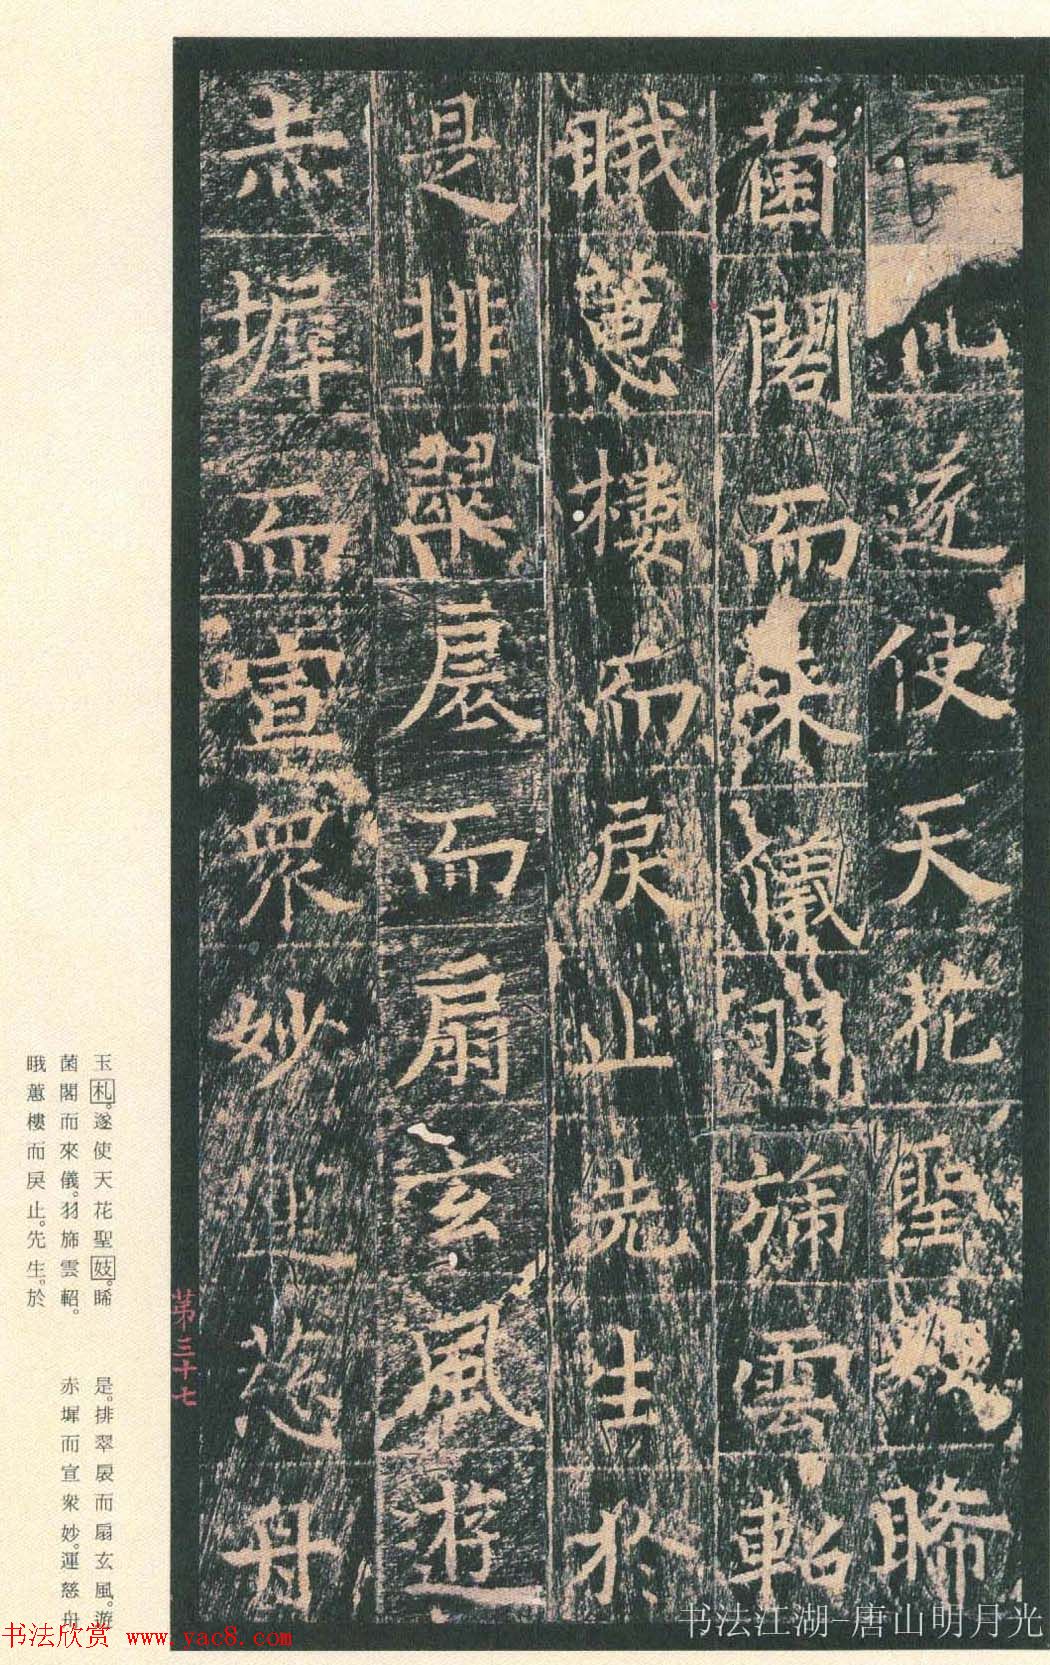 玉札遂使天花聖妓晞
菌閣而來儀羽旆雲軺
睋蕙樓而戾止先生於
是排翠扆而扇玄風遊
赤墀而宣衆妙運慈舟
第三十七
玉札。遂使天花聖妓。晞
菌閣而來儀。羽旆雲軺。
睋蕙樓而戾止。先生。於
是。排翠扆而扇玄風。遊
赤墀而宣衆妙。運慈舟
书法欣赏 www.yac8.com
书法江湖-唐山明月光